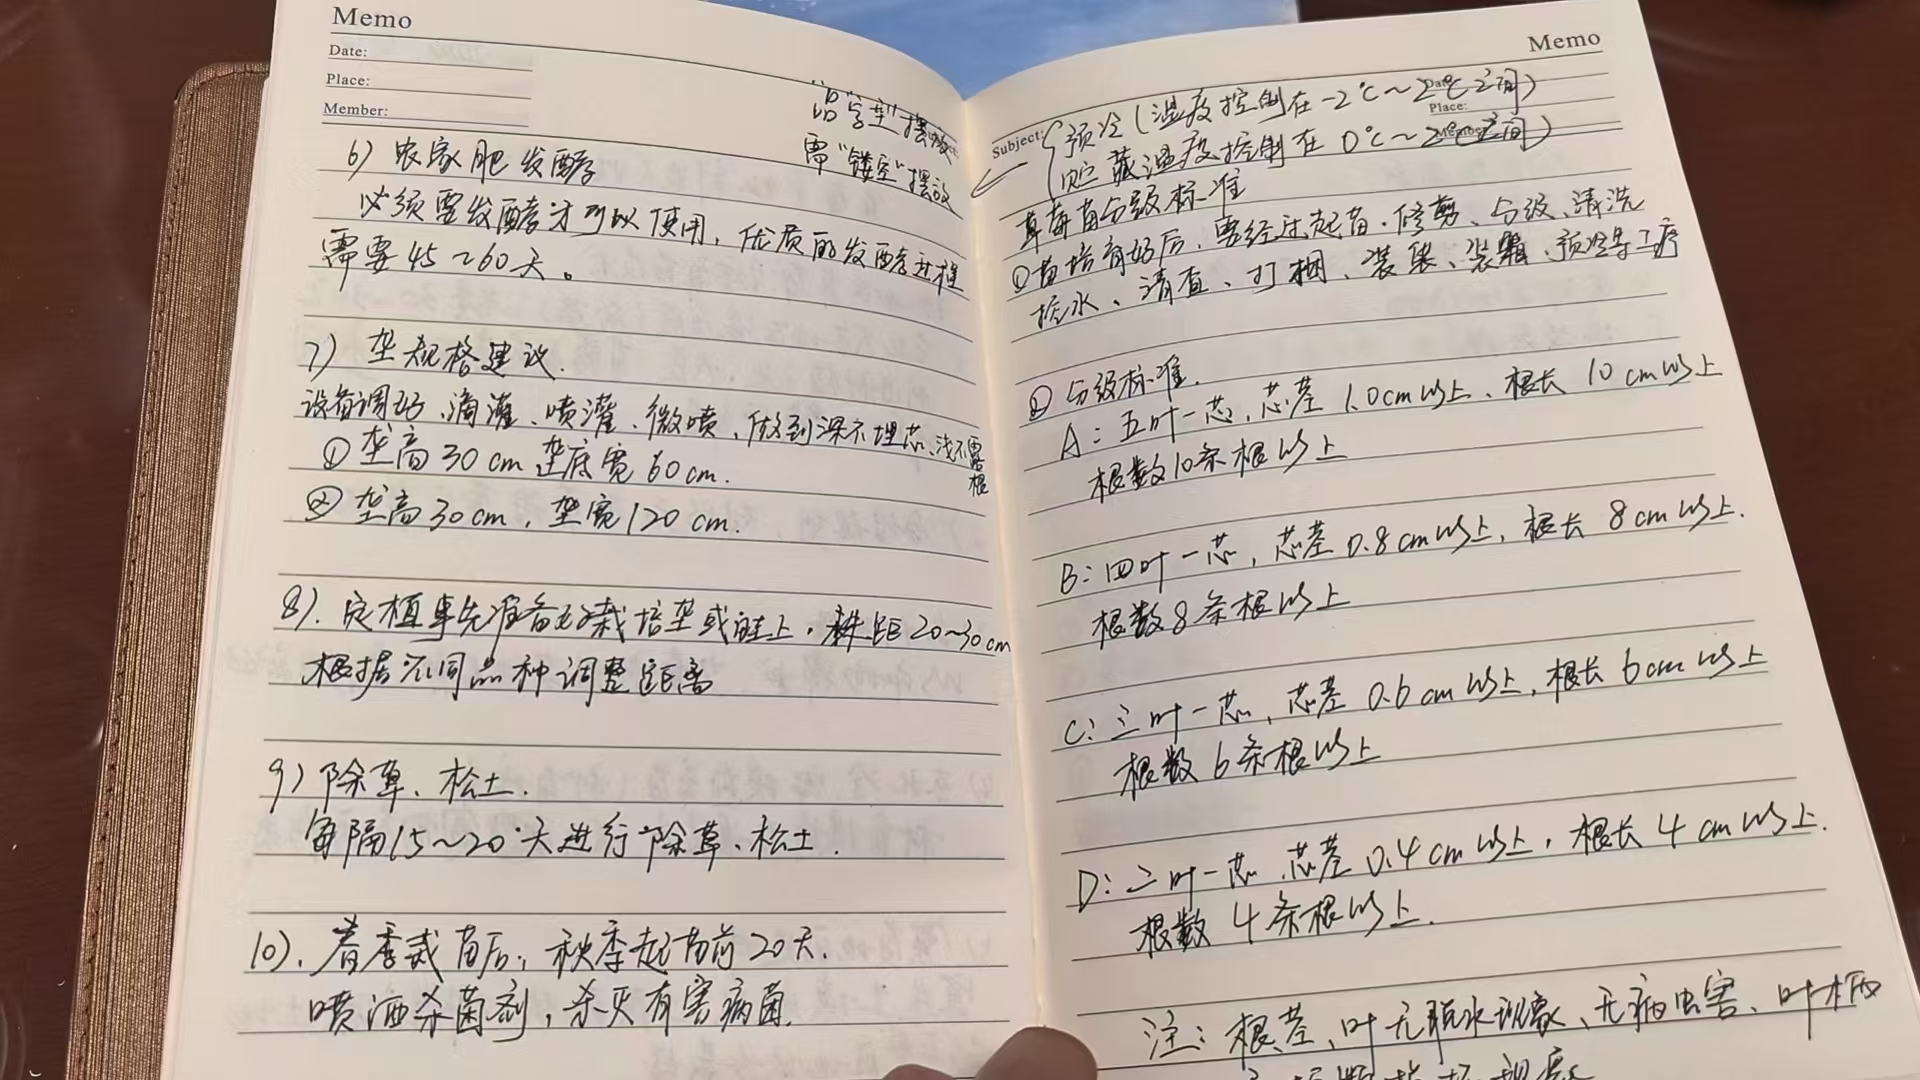 Memo
Date:
Place:
Member:
"品"字型"摆放
需"镂空"摆放
6) 农家肥发酵
必须要发酵才可以使用,优质的发酵过程
需要45~60天。
7) 垄规格建议.
设备调好、滴灌、喷灌、微喷,做到深不埋芯、浅不露根
① 垄高30cm 垄底宽60cm.
② 垄高30cm,垄宽120cm.
8).定植事先准备好栽培垄或畦上,株距20~30cm
根据不同品种调整距离
9) 除草、松土.
每隔15~20天进行除草、松土.
10).春季栽苗后,秋季起苗前20天.
喷洒杀菌剂,杀灭有害病菌.
Memo
Date:
Place:
Subject:
预冷(温度控制在-2℃~2℃之间)
贮藏温度控制在0℃~2℃之间)
草莓苗分级标准
①苗培育好后,要经过起苗、修剪、分级、清洗
控水、清查、打捆、装袋、装箱、预冷等工序
② 分级标准.
A:五叶一芯,芯茎1.0cm以上、根长10cm以上
根数10条根以上
B:四叶一芯,芯茎0.8cm以上,根长8cm以上.
根数8条根以上
C:三叶一芯,芯茎0.6cm以上,根长6cm以上
根数6条根以上
D:二叶一芯,芯茎0.4cm以上,根长4cm以上.
根数4条根以上.
注:根茎、叶无脱水现象、无病虫害、叶柄